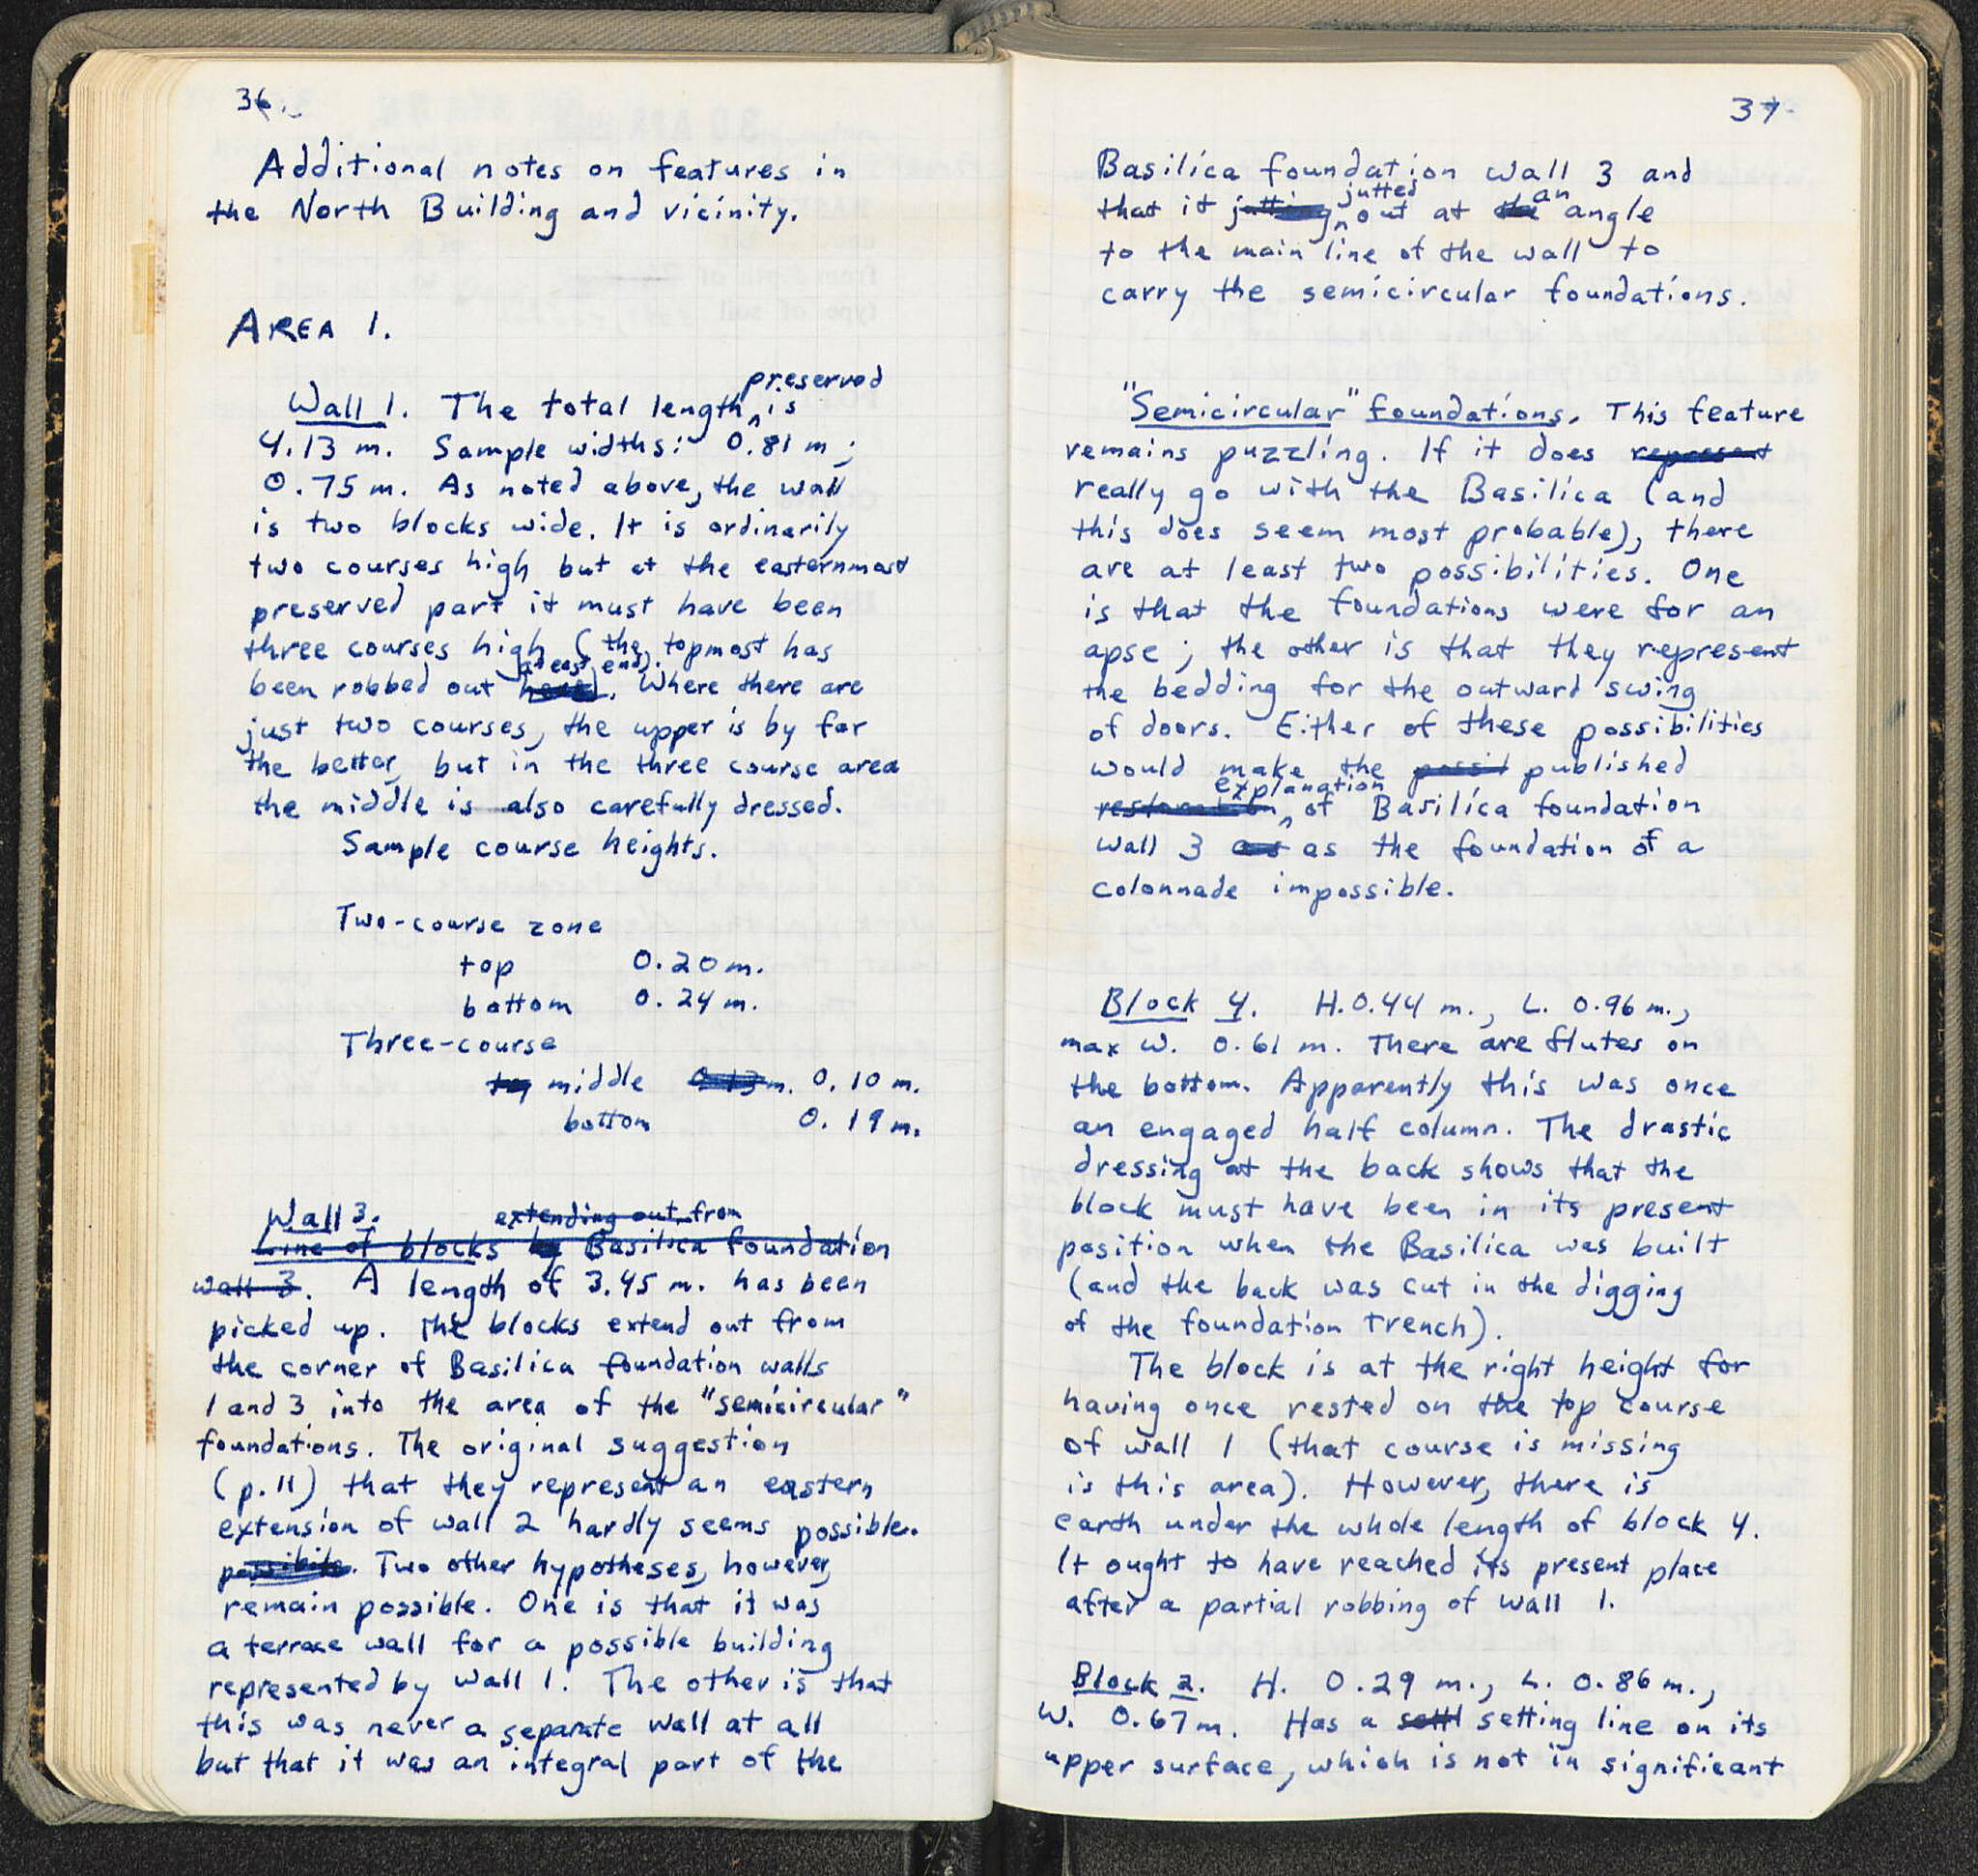 36.
Additional notes on features in
the North Building and vicinity.
AREA 1.
preserved
Wall 1. The total length ^ is
4.13 m. Sample widths: 0.81 m;
0.75 m. As noted above, the wall
is two blocks wide. It is ordinarily
two courses high but at the easternmost
preserved part it must have been
three courses high (the topmost has
at east end).
been robbed out here). Where there are
just two courses, the upper is by far
the better, but in the three course area
the middle is also carefully dressed.
Sample course heights.
Two-course zone
top 0.20 m.
bottom 0.24 m.
Three-course
top middle 0.13 m. 0.10 m.
bottom 0.19 m.
Wall 3. extending out from
Line of blocks by Basilica foundation
wall 3. A length of 3.45 m. has been
picked up. The blocks extend out from
the corner of Basilica foundation walls
1 and 3 into the area of the "semicircular"
foundations. The original suggestion
(p. 11) that they represent an eastern
extension of wall 2 hardly seems possible.
possible. Two other hypotheses, however,
remain possible. One is that it was
a terrace wall for a possible building
represented by wall 1. The other is that
this was never a separate wall at all
but that it was an integral part of the
37
Basilica foundation wall 3 and
jutted an
that it jutting ^ out at the angle
to the main line of the wall to
carry the semicircular foundations.
"Semicircular" foundations. This feature
remains puzzling. If it does represent
really go with the Basilica (and
this does seem most probable), there
are at least two possibilities. One
is that the foundations were for an
apse; the other is that they represent
the bedding for the outward swing
of doors. Either of these possibilities
would make the possil published
explanation
restoration ^ of Basilica foundation
wall 3 as as the foundation of a
colonnade impossible.
Block 4. H. 0.44 m., L. 0.96 m.,
max W. 0.61 m. There are flutes on
the bottom. Apparently this was once
an engaged half column. The drastic
dressing at the back shows that the
block must have been in its present
position when the Basilica was built
(and the back was cut in the digging
of the foundation trench).
The block is at the right height for
having once rested on the top course
of wall 1 (that course is missing
is this area). However, there is
earth under the whole length of block 4.
It ought to have reached its present place
after a partial robbing of wall 1.
Block 2. H. 0.29 m., L. 0.86 m.,
W. 0.67 m. Has a settl setting line on its
upper surface, which is not in significant